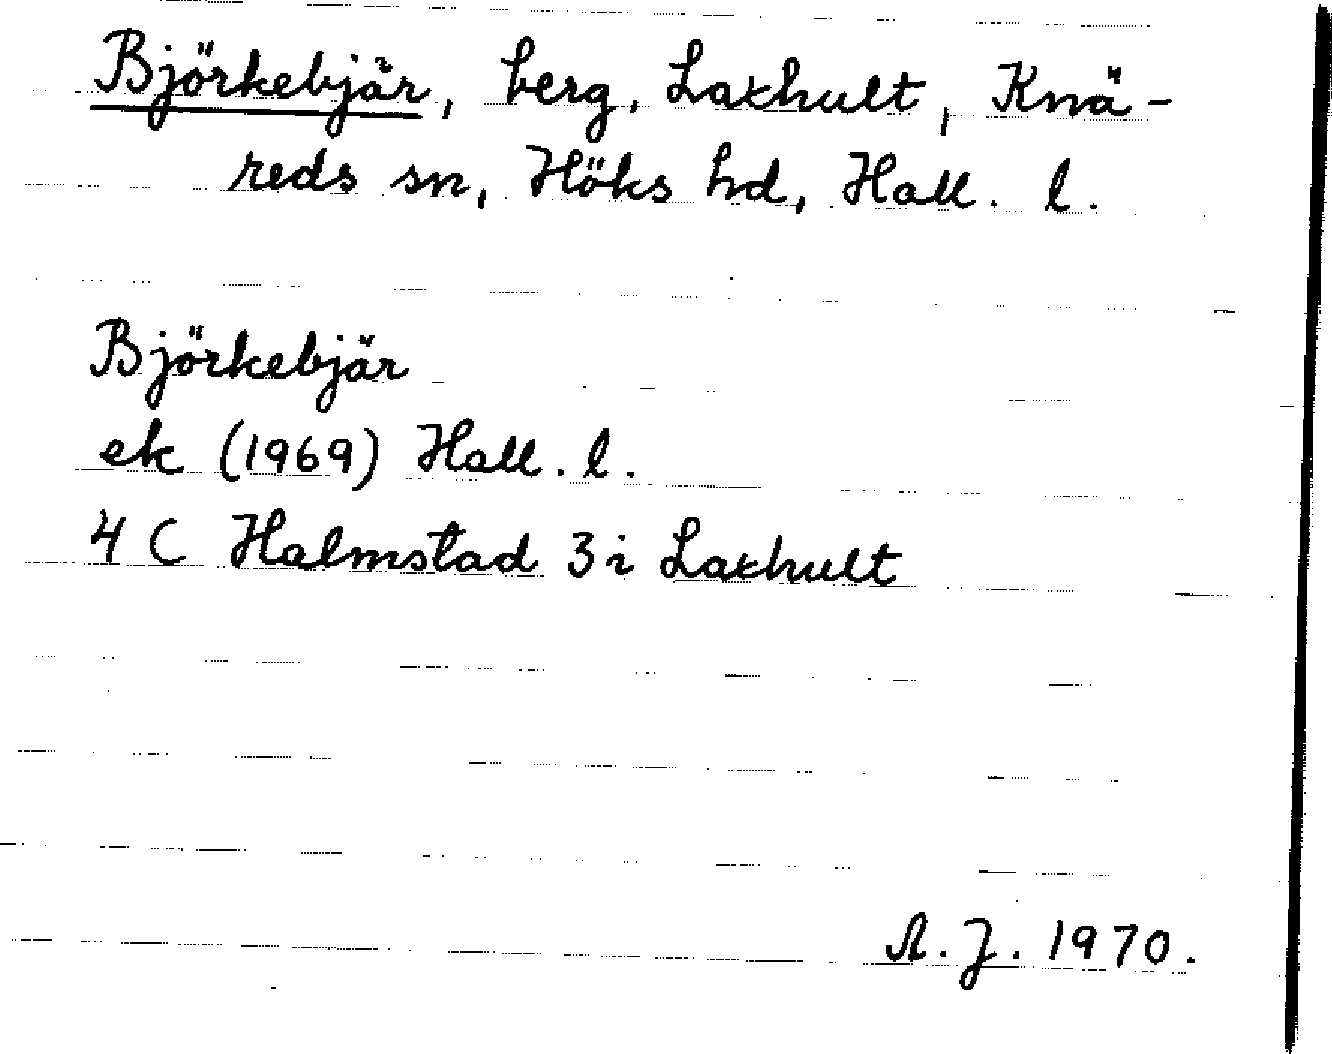 Björkebjär, berg, Laxhult, Knä-
reds sn, Höks hd, Hall. l.
Björkebjär
ek (1969) Hall. l.
4 C Halmstad 3 i Laxhult
A. J. 1970.